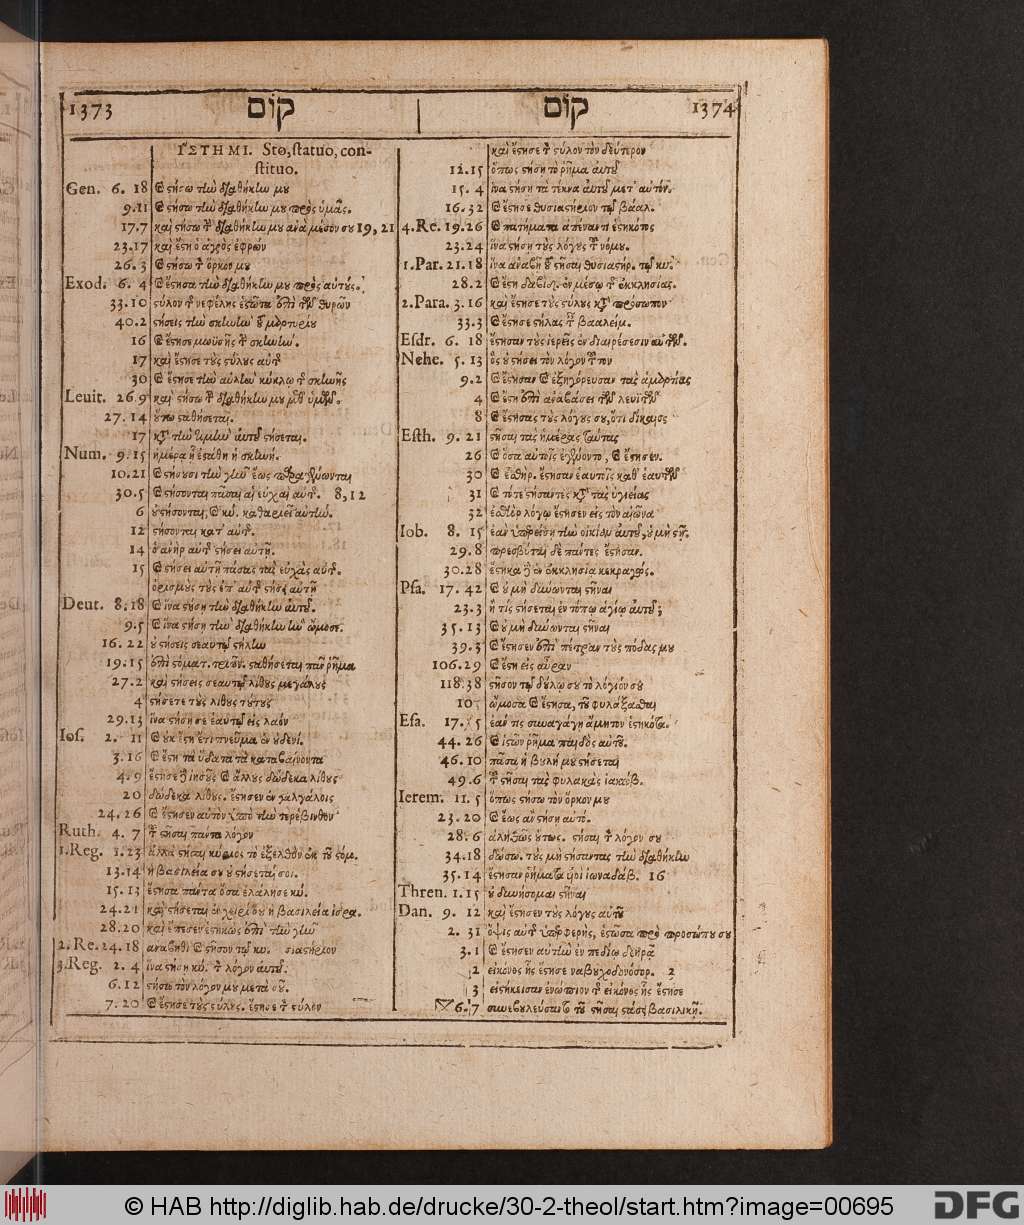 1373 קום
קום 1374
ἽΣΤΗΜΙ. Sto, statuo, con-
stituo.
Gen. 6. 18 & στήσω τὴν διαθήκην μου
9.11 & στήσω τὴν διαθήκην μου πρὸς ὑμᾶς.
17.7 καὶ στήσω τ διαθήκην μου ἀνὰ μέσον σου 19, 21
23.17 καὶ ἔστη ὁ ἀγρὸς ἐφρών
26.3 & στήσω τ ὅρκον μου
Exod. 6. 4 & ἔστησα τὴν διαθήκην μου πρὸς αὐτούς.
33.10 στύλον τ νεφέλης ἑστῶτα ἐπὶ τῶν θυρῶν
40.2 στήσεις τὴν σκηνὴν τ μαρτυρίου
16 & ἔστησε μωϋσῆς τ σκηνήν.
17 καὶ ἔστησε τοὺς στύλους αὐτ
30 & ἔστησε τὴν αὐλὴν κύκλῳ τ σκηνῆς
Leuit. 26.9 καὶ στήσω τ διαθήκην μου μεθ' ὑμῶν.
27.14 οὕτω σταθήσεται.
17 κατὰ τὴν τιμὴν αὐτοῦ στήσεται.
Num. 9.15 ἡμέρα ᾗ ἐστάθη ἡ σκηνή.
10.21 & στήσουσι τὴν σκηνὴν ἕως παραγένωνται
30.5 & στήσονται πᾶσαι αἱ εὐχαὶ αὐτ. 8, 12
6 οὐ στήσονται, & κύ. καθαριεῖ αὐτήν.
12 στήσονται κατ' αὐτ.
14 ὁ ἀνὴρ αὐτ στήσει αὐτῇ.
15 & στήσει αὐτῇ πάσας τὰς εὐχὰς αὐτ.
ὁρισμοὺς τοὺς ἐπ' αὐτ στήσει αὐτῇ
Deut. 8.18 & ἵνα στήσῃ τὴν διαθήκην αὐτοῦ.
9.5 & ἵνα στήσῃ τὴν διαθήκην ἣν ὤμοσε.
16. 22 οὐ στήσεις σεαυτῷ στήλην
19.15 ἐπὶ στόματ. τριῶν. σταθήσεται πᾶν ῥῆμα
27.2 καὶ στήσεις σεαυτῷ λίθους μεγάλους
4 στήσετε τοὺς λίθους τούτους
29.13 ἵνα στήσῃ σε ἑαυτῷ εἰς λαόν
Ios. 2. 11 & οὐκ ἔστη ἔτι πνεῦμα ἐν οὐδενί.
3.16 & ἔστη τὰ ὕδατα τὰ καταβαίνοντα
4. 9 ἔστησε δ ἰησοῦς & ἄλλους δώδεκα λίθους
20 δώδεκα λίθους. ἔστησεν ἐν γαλγάλοις
24.26 & ἔστησεν αὐτὸν ὑπὸ τὴν τερέβινθον
Ruth. 4. 7 τ στῆσαι πάντα λόγον
1.Reg. 1.23 ἀλλὰ στήσαι κύριος τὸ ἐξελθὸν ἐκ τοῦ στόμ.
13.14 ἡ βασιλεία σου οὐ στήσεταί σοι.
15. 13 ἔστησα πάντα ὅσα ἐλάλησε κύ.
24.21 καὶ στήσεται ἐν χειρί σου ἡ βασιλεία ἰσρα.
28.20 καὶ ἔπεσεν ἑστηκὼς ἐπὶ τὴν γῆν
2.Re.24.18 ἀνάβηθι & στῆσον τῷ κυ. σιαστήριον
3.Reg. 2. 4 ἵνα στήσῃ κύ. τ λόγον αὐτοῦ.
6.12 στήσω τὸν λόγον μου μετὰ σοῦ.
7. 20 & ἔστησε τοὺς στύλους. ἔστησε τ στύλον
καὶ ἔστησε τ στύλον τὸν δεύτερον
12.15 ὅπως στήσῃ τὸ ῥῆμα αὐτοῦ
15. 4 ἵνα στήσῃ τὰ τέκνα αὐτοῦ μετ' αὐτόν.
16.32 & ἔστησε θυσιαστήριον τῷ βάαλ.
4.Re. 19.26 & πατήματα ἀπέναντι ἑστηκότος
23.24 ἵνα στήσῃ τοὺς λόγους τ νόμου.
1.Par. 21.18 ἵνα ἀναβῇ τ στῆσαι θυσιαστήρ. τῷ κυ.
28.2 & ἔστη δαβὶδ. ἐν μέσῳ τ ἐκκλησίας.
2.Para. 3.16 καὶ ἔστησε τοὺς στύλους κατὰ πρόσωπον
33.3 & ἔστησε στήλας τ βααλείμ.
Esdr. 6. 18 ἔστησαν τοὺς ἱερεῖς ἐν διαιρέσεσιν αὐτῶν.
Nehe. 5. 13 ὃς οὐ στήσει τὸν λόγον τ τον
9.2 & ἔστησαν & ἐξηγόρευσαν τὰς ἁμαρτίας
4 & ἔστη ἐπὶ ἀναβάσει τῶν λευιτῶν
8 & ἔστησας τοὺς λόγους σου, ὅτι δίκαιος
Esth. 9. 21 στῆσαι τὰς ἡμέρας ταύτας
26 & ὅσα αὐτοῖς ἐγένοντο, & ἔστησεν.
30 & ἐσθὴρ. ἔστησαν ἑαυτοῖς καθ' ἑαυτῶν
31 & τότε στήσαντες κατὰ τὰς ὑγιείας
32 ἐσθὴρ λόγῳ ἔστησεν εἰς τὸν αἰῶνα
Iob. 8. 15 ἐὰν ὑπερείσῃ τὴν οἰκίαν αὐτοῦ, οὐ μὴ στῇ.
29.8 πρεσβύται δὲ πάντες ἔστησαν.
30.28 ἕστηκα δ ἐν ἐκκλησίᾳ κεκραγώς.
Psa. 17. 42 & οὐ μὴ δύνωνται στῆναι
23.3 ἢ τίς στήσεται ἐν τόπῳ ἁγίῳ αὐτοῦ;
35.13 & οὐ μὴ δύνωνται στῆναι
39.3 & ἔστησεν ἐπὶ πέτραν τοὺς πόδας μου
106.29 & ἔστη εἰς αὔραν
118.38 στῆσον τῷ δούλῳ σου τὸ λόγιόν σου
10 ὤμοσα & ἔστησα, τοῦ φυλάξασθαι
Esa. 17. 5 ἐάν τις συναγάγῃ ἄμητον ἑστηκότα.
44.26 & ἱστῶν ῥῆμα παιδὸς αὐτοῦ.
46.10 πᾶσα ἡ βουλή μου στήσεται
49.6 τ στῆσαι τὰς φυλακὰς ἰακώβ.
Ierem. 11. 5 ὅπως στήσω τὸν ὅρκον μου
23.20 & ἕως ἂν στήσῃ αὐτό.
28.6 ἀληθῶς οὕτως. στήσαι τ λόγον σου
34.18 δώσω. τοὺς μὴ στήσαντας τὴν διαθήκην
35.14 ἔστησαν ῥήματα υἱοὶ ἰωναδάβ. 16
Thren. 1.15 οὐ δυνήσομαι στῆναι
Dan. 9. 12 καὶ ἔστησεν τοὺς λόγους αὐτοῦ
2. 31 ὄψις αὐτ ὑπερφερής, ἑστῶσα πρὸ προσώπου σου
3.1 & ἔστησεν αὐτὴν ἐν πεδίῳ δεηρᾶ
2 εἰκόνος ἧς ἔστησε ναβουχοδονόσορ. 2
3 εἱστήκεισαν ἐνώπιον τ εἰκόνος ἧς ἔστησε
6.7 συνεβουλεύσαντο τοῦ στῆσαι στάσει βασιλικῇ.
© HAB http://diglib.hab.de/drucke/30-2-theol/start.htm?image=00695
DFG